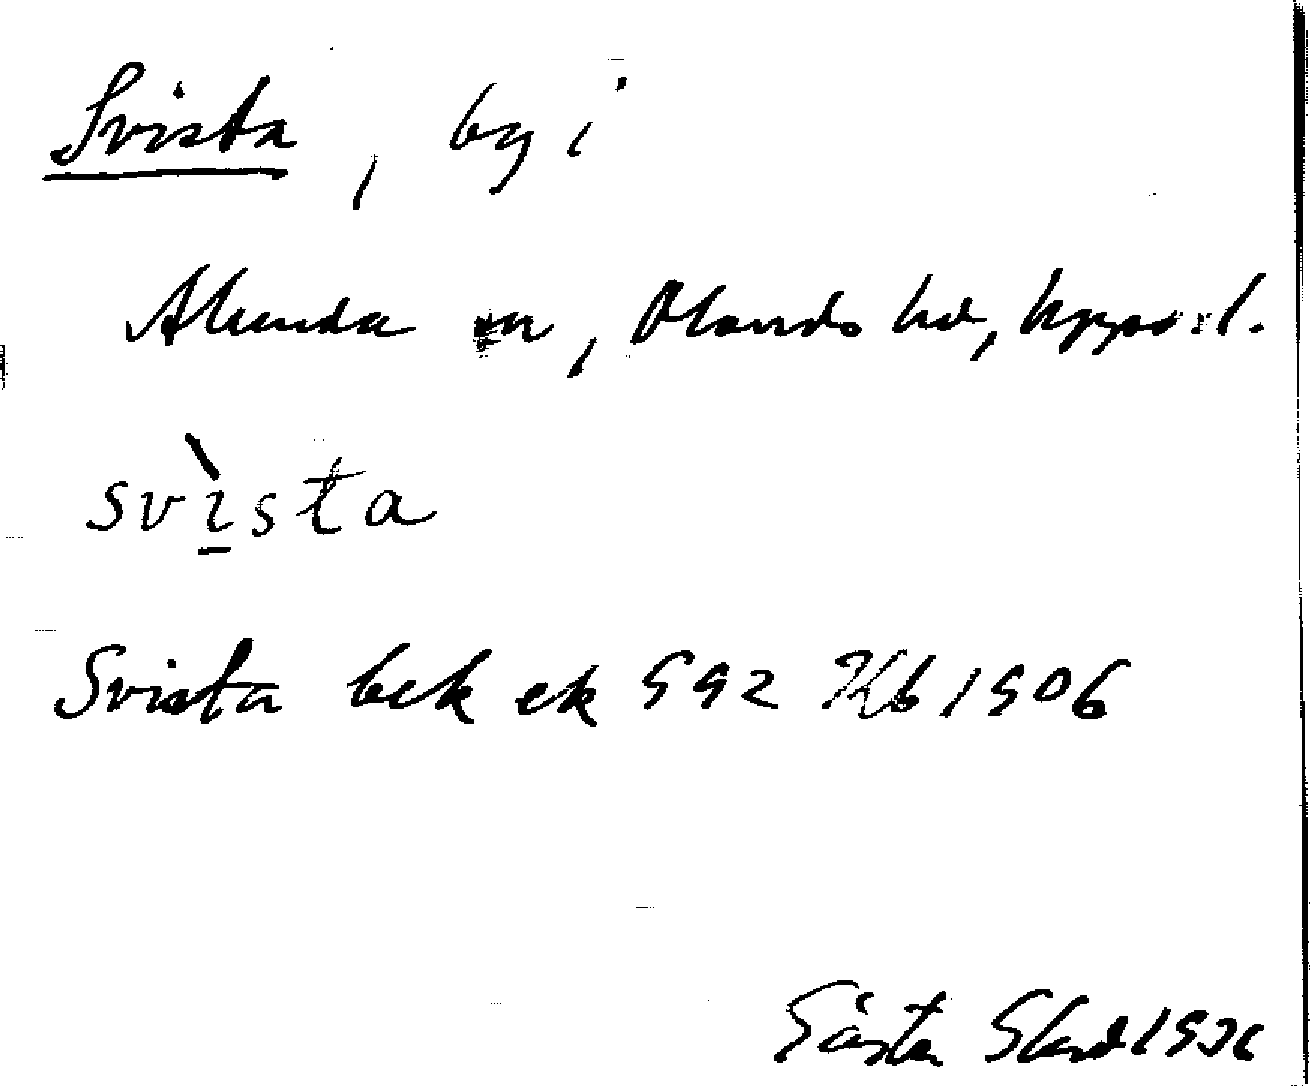 Svista, by i
Alunda sn, Olands hd, Upps. l.
svìsta
Svista bck ek 592 Kb 1906
Gösta 1936